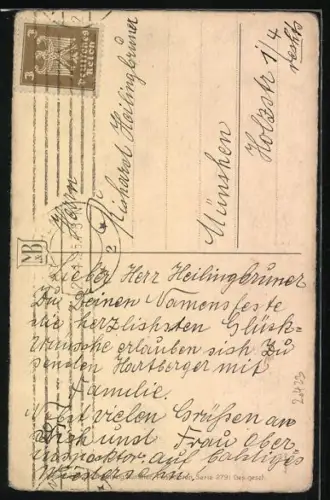 3 3
Deutsches
Reich
Herrn
Richard Heilingbruner
München
Holzstr 1/4
rechts
Lieber Herr Heilingbruner
Zu Deinen Namensfeste
die herzlichsten Glück-
wünsche erlauben sich zu
senden Hartberger mit
Familie.
Mit vielen Grüßen an
Dich und Frau Ober
inspektor auf baldiges
Wiedersehen!
Serie 279
Des. gesch.